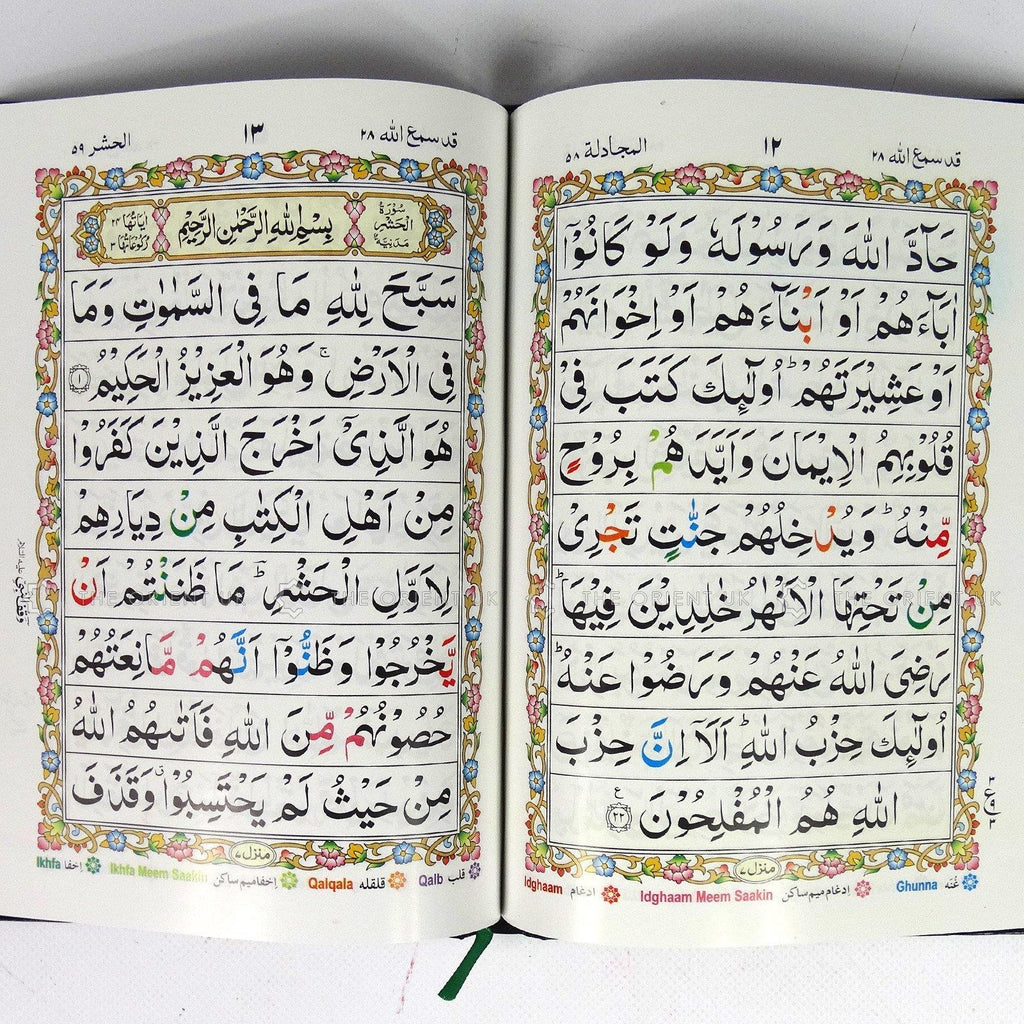 قد سمع الله ٢٨
١٢
المجادلة ٥٨
حَآدَّ اللّٰهَ وَرَسُوْلَهٗ وَلَوْ كَانُوْۤا
اٰبَآءَهُمْ اَوْ اَبْنَآءَهُمْ اَوْ اِخْوَانَهُمْ
اَوْ عَشِيْرَتَهُمْؕ اُولٰٓئِكَ كَتَبَ فِىْ
قُلُوْبِهِمُ الْاِيْمَانَ وَاَيَّدَهُمْ بِرُوْحٍ
مِّنْهُؕ وَيُدْخِلُهُمْ جَنّٰتٍ تَجْرِىْ
مِنْ تَحْتِهَا الْاَنْهٰرُ خٰلِدِيْنَ فِيْهَاؕ
رَضِىَ اللّٰهُ عَنْهُمْ وَرَضُوْا عَنْهُؕ
اُولٰٓئِكَ حِزْبُ اللّٰهِؕ اَلَاۤ اِنَّ حِزْبَ
اللّٰهِ هُمُ الْمُفْلِحُوْنَ ٢٢
منزل ٧
Ghunna غُنّه
Idghaam Meem Saakin اِدغام ميم ساكن
Idghaam ادغام
قد سمع الله ٢٨
١٣
الحشر ٥٩
سُوْرَةُ الْحَشْرِ مَدَنِيَّةٌ
بِسْمِ اللّٰهِ الرَّحْمٰنِ الرَّحِيْمِ
اٰيَاتُهَا ٢٤ رُكُوْعَاتُهَا ٣
سَبَّحَ لِلّٰهِ مَا فِى السَّمٰوٰتِ وَمَا
فِى الْاَرْضِۚ وَهُوَ الْعَزِيْزُ الْحَكِيْمُ ١
هُوَ الَّذِىْۤ اَخْرَجَ الَّذِيْنَ كَفَرُوْا
مِنْ اَهْلِ الْكِتٰبِ مِنْ دِيَارِهِمْ
لِاَوَّلِ الْحَشْرِؕ مَا ظَنَنْتُمْ اَنْ
يَّخْرُجُوْا وَظَنُّوْۤا اَنَّهُمْ مَّانِعَتُهُمْ
حُصُوْنُهُمْ مِّنَ اللّٰهِ فَاَتٰىهُمُ اللّٰهُ
مِنْ حَيْثُ لَمْ يَحْتَسِبُوْا وَقَذَفَ
منزل ٧
Qalb قلب
Qalqala قلقله
Ikhfa Meem Saakin اِخفا ميم ساكن
Ikhfa اِخفا
THE ORIENT UK